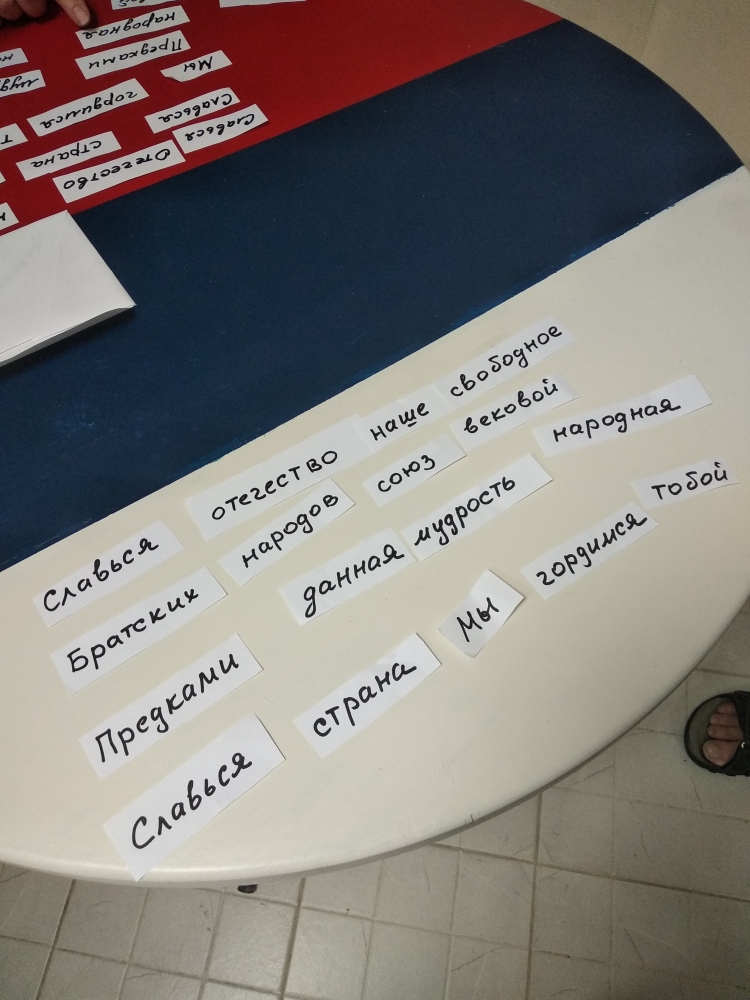 Славься отечество наше свободное
Братских народов союз вековой
Предками данная мудрость народная
Славься страна Мы гордимся тобой
народная
Предками
Мы
гордимся
Славься
Славься
страна
Отечество